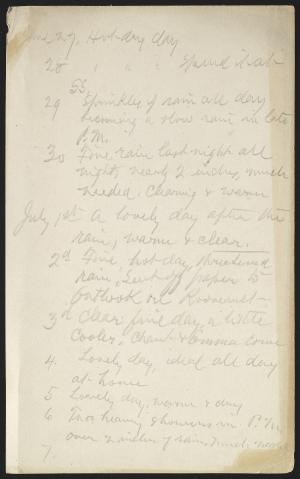 June 27, Hot dry day
28 " " " Spend it at
SS.
29 Sprinkles of rain all day
becoming a slow rain in late
P.M.
30 Fine rain last night all
night, nearly 2 inches, much
needed. Clearing & warm
July 1st A lovely day after the
rain, warm & clear.
2d Fine hot day, threatened
rain, Sent off paper to
Outlook on Roosevelt
3d Clear fine day, a little
cooler, Chant & Emma come
4. Lovely day, ideal all day
at home
5 Lovely day, warm & dry
6 Two heavy showers in P.M.
over 2 inches of rain, much needed
7.